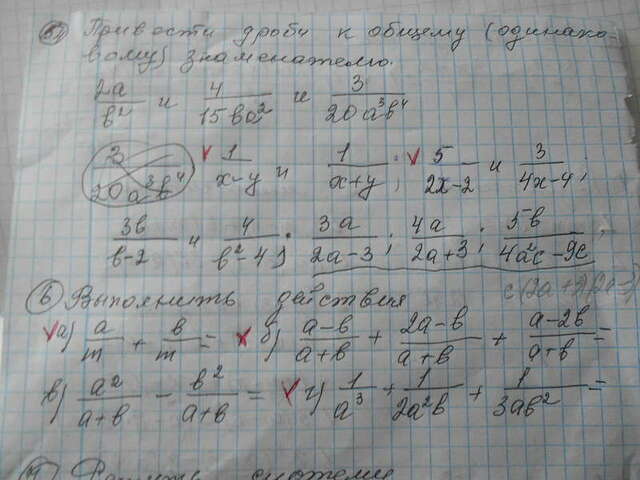 5) Привести дроби к общему (одинако-
вому) знаменателю.
2a/b² и 4/15ba² и 3/20a³b⁴
3/20a³b⁴ √ 1/x-y и 1/x+y; √ 5/2x-2 и 3/4x-4;
3b/b-2 и 4/b²-4; 3a/2a-3; 4a/2a+3; 5b/4a²c-9c;
6) Выполнить действия
√ а) a/m + b/m = б) a-b/a+b + 2a-b/a+b + a-2b/a+b =
в) a²/a+b - b²/a+b = √ г) 1/a³ + 1/2a²b + 1/3ab² =